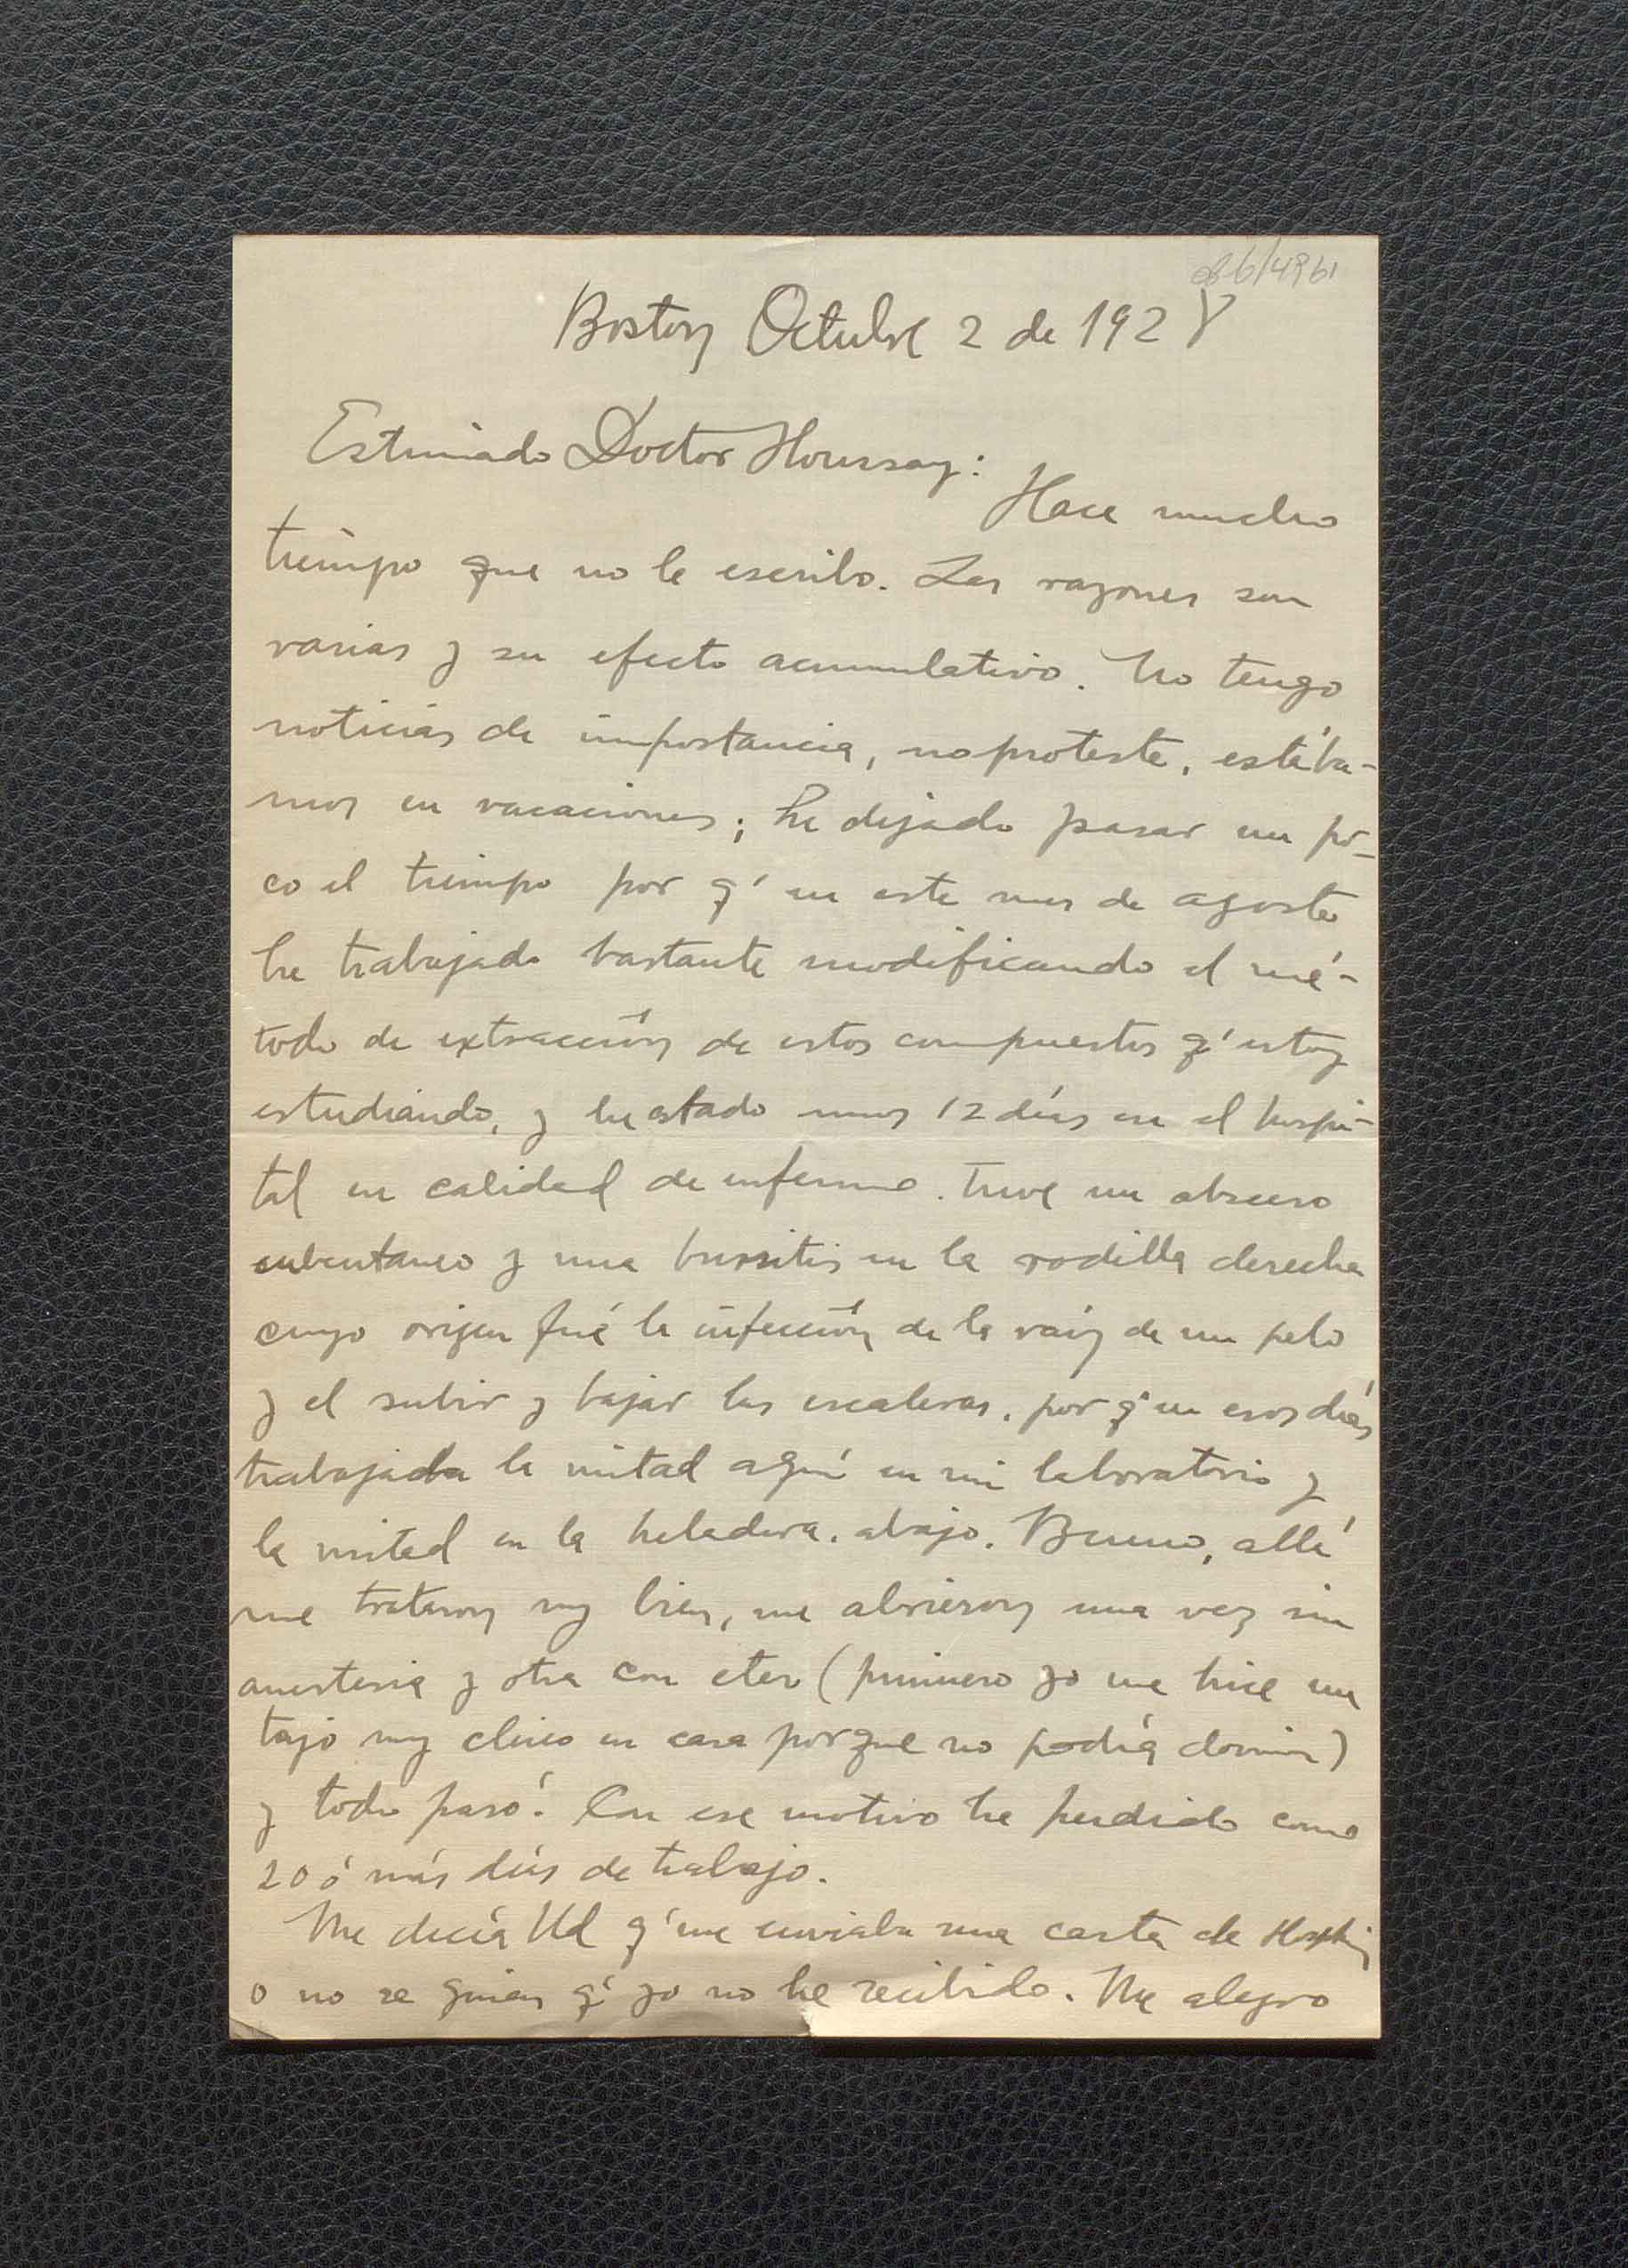 Boston Octubre 2 de 1928
Estimado Doctor Houssay:
Hace mucho
tiempo que no le escribo. Las razones son
varias y su efecto acumulativo. No tengo
noticias de importancia, no proteste, estába-
mos en vacaciones; he dejado pasar un po-
co el tiempo por q' en este mes de agosto
he trabajado bastante modificando el mé-
todo de extracción de estos compuestos q' estoy
estudiando, y he estado unos 12 días en el hospi-
tal en calidad de enfermo. Tuve un absceso
subcutaneo y una bursitis en la rodilla derecha
cuyo origen fué la infección de la raíz de un pelo
y el subir y bajar las escaleras, por q' en esos días
trabajaba la mitad aquí en mi laboratorio y
la mitad en la heladera, abajo. Bueno, allá
me trataron muy bien, me abrieron una vez sin
anestesia y otra con eter (primero yo me hice un
tajo muy chico en casa porque no podía dormir)
y todo pasó. Con ese motivo he perdido como
20 ó más días de trabajo.
Me decía Ud q' me enviaba una carta de
o no se quien q' yo no he recibido. Me alegro